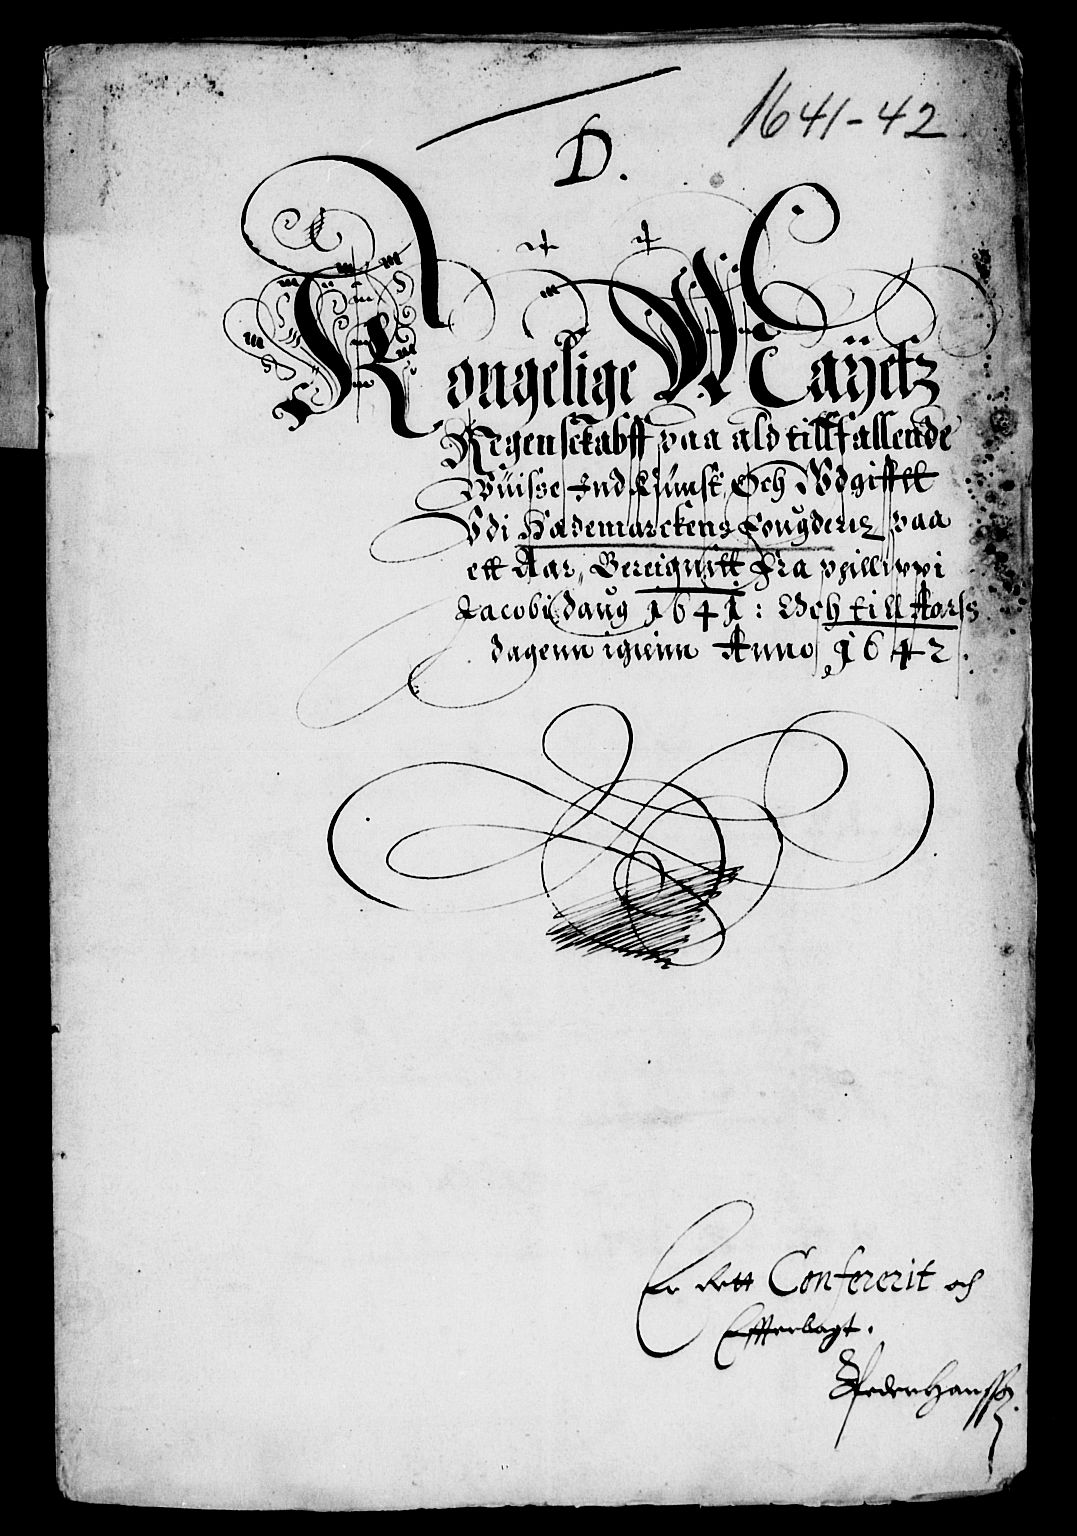 1641-42
D.
Kongelige Mayetz
Regenschabff paa ald tillfallende
Wüisse Ind Kumst, Och Wdgifftt
Vdi Hademarckens Fougderiz paa
ett Aar, Bereignitt Fra Philippi
Jacobi daug 1641: Och till Korss
dagenn igienn Anno 1642.
Er Rett Confererit och
Effterlagt.
Peder Hanssøn.